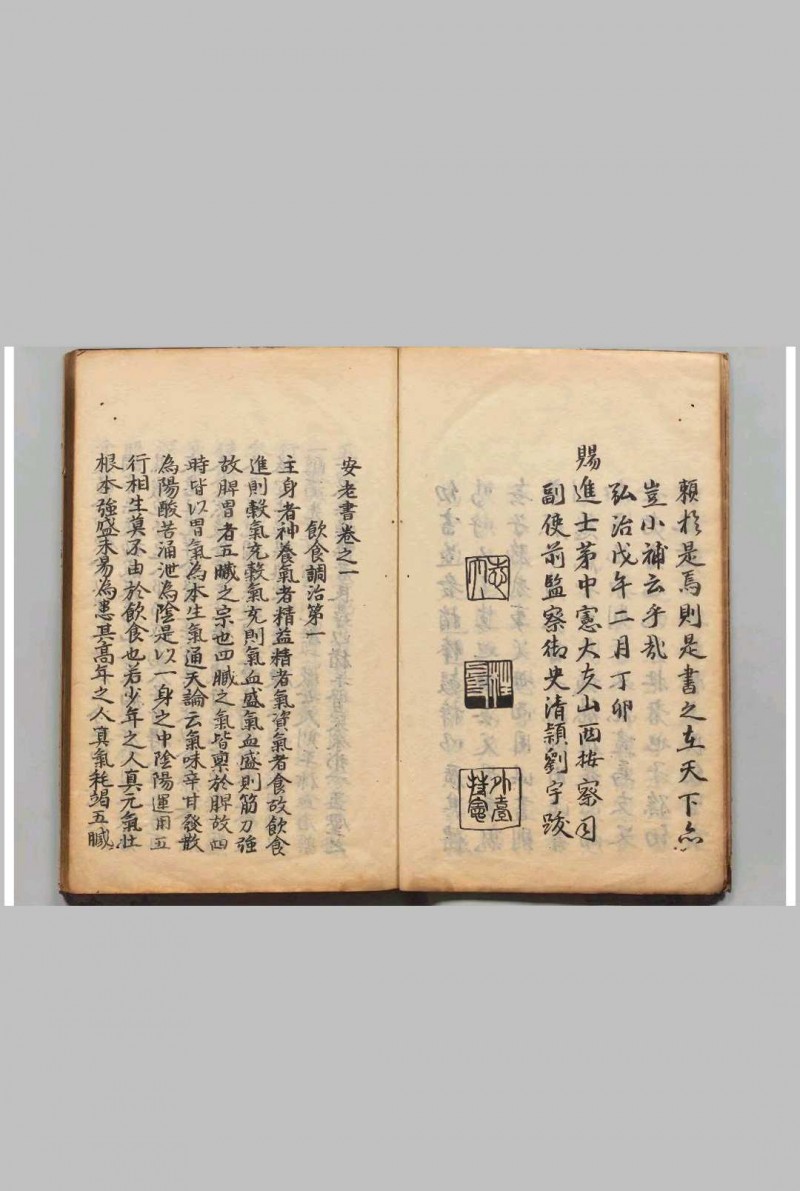 賴於是焉則是書之在天下亦
豈小補云乎哉
弘治戊午二月丁卯
賜進士第中憲大夫山西按察司
副使前監察御史清潁劉宇跋
志大
外臺持憲
安老書卷之一
飲食調治第一
主身者神養氣者精益精者氣資氣者食故飲食
進則穀氣充穀氣充則氣血盛氣血盛則筋力強
故脾胃者五臟之宗也四臟之氣皆禀於脾故四
時皆以胃氣為本生氣通天論云氣味辛甘發散
為陽酸苦涌泄為陰是以一身之中陰陽運用五
行相生莫不由於飲食也若少年之人真元氣壯
根本強盛未易為患其高年之人真氣耗竭五臟